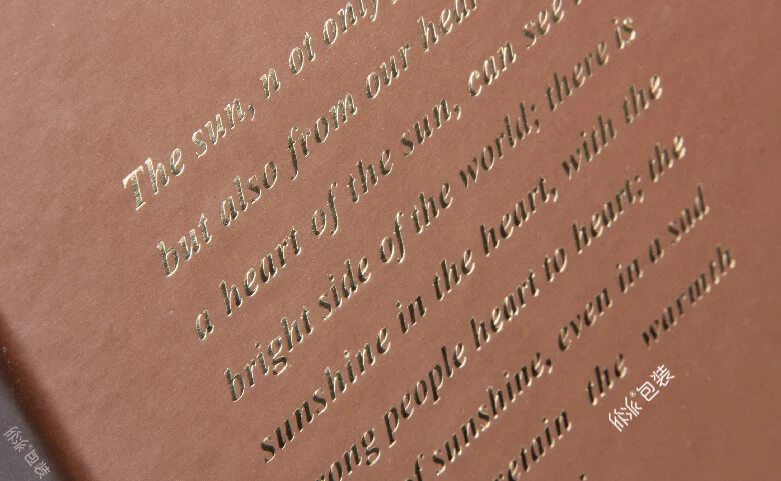 The sun, n ot only
but also from our hear
a heart of the sun, can see
bright side of the world; there is
sunshine in the heart, with the
ong people heart to heart; the
f sunshine, even in a sad
etain the warmth
欣派®包装
欣派®包装